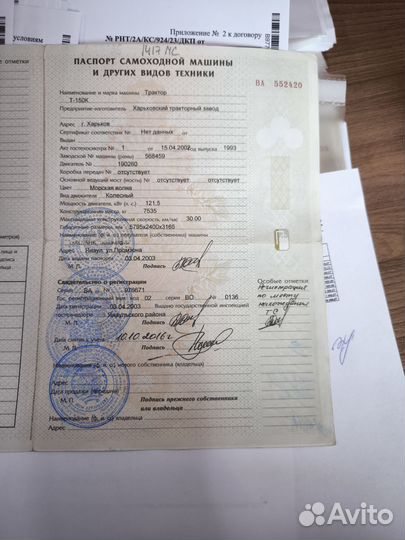 условиям
Приложение № 2 к договору
№ РНТ/2А/КС/924/23/ДКП от
1417 МС
ПАСПОРТ САМОХОДНОЙ МАШИНЫ
И ДРУГИХ ВИДОВ ТЕХНИКИ
ВА 552420
Наименование и марка машины Трактор
Т-150К
Предприятие-изготовитель Харьковский тракторный завод
Адрес г. Харьков
Сертификат соответствия № Нет данных от
Выдан
Акт гостехосмотра № 1 от 15.04.2002 год выпуска 1993
Заводской № машины (рамы) 568459
Двигатель № 190260
Коробка передач № отсутствует
Основной ведущий мост (мосты) № отсутствует отсутствует
Цвет Морская волна
Вид движителя Колесный
Мощность двигателя, кВт (л. с.) 121.5
Конструкционная масса, кг 7535
Максимальная конструктивная скорость, км/час 30.00
Габаритные размеры, мм 5795х2400х3165
Наименование (ф. и. о.) собственника) машины
Адрес ул.Промзона
Дата выдачи паспорта 03.04.2003
М. П. Подпись
Свидетельство о регистрации
Серия ВА № 076671
Гос. регистрационный знак код 02 серия ВО № 0136
Дата 03.04.2003 Выдано государственной инспекцией
гостехнадзора района
М. П. Подпись
Дата снятия с учета 10.10.2016 г
М. П. Подпись
Особые отметки
Регистрация
по месту
нахождения
ТС
Наименование (ф. и. о.) нового собственника (владельца)
Адрес
Дата продажи (передачи)
М. П. Подпись прежнего собственника
или владельца
Наименование (ф. и. о.) владельца)
Адрес
Avito